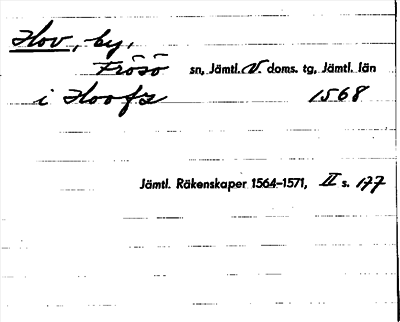 Hov, by,
Frösö sn, Jämtl. V. doms. tg, Jämtl. län
i Hoofz 1568
Jämtl. Räkenskaper 1564–1571, II s. 177